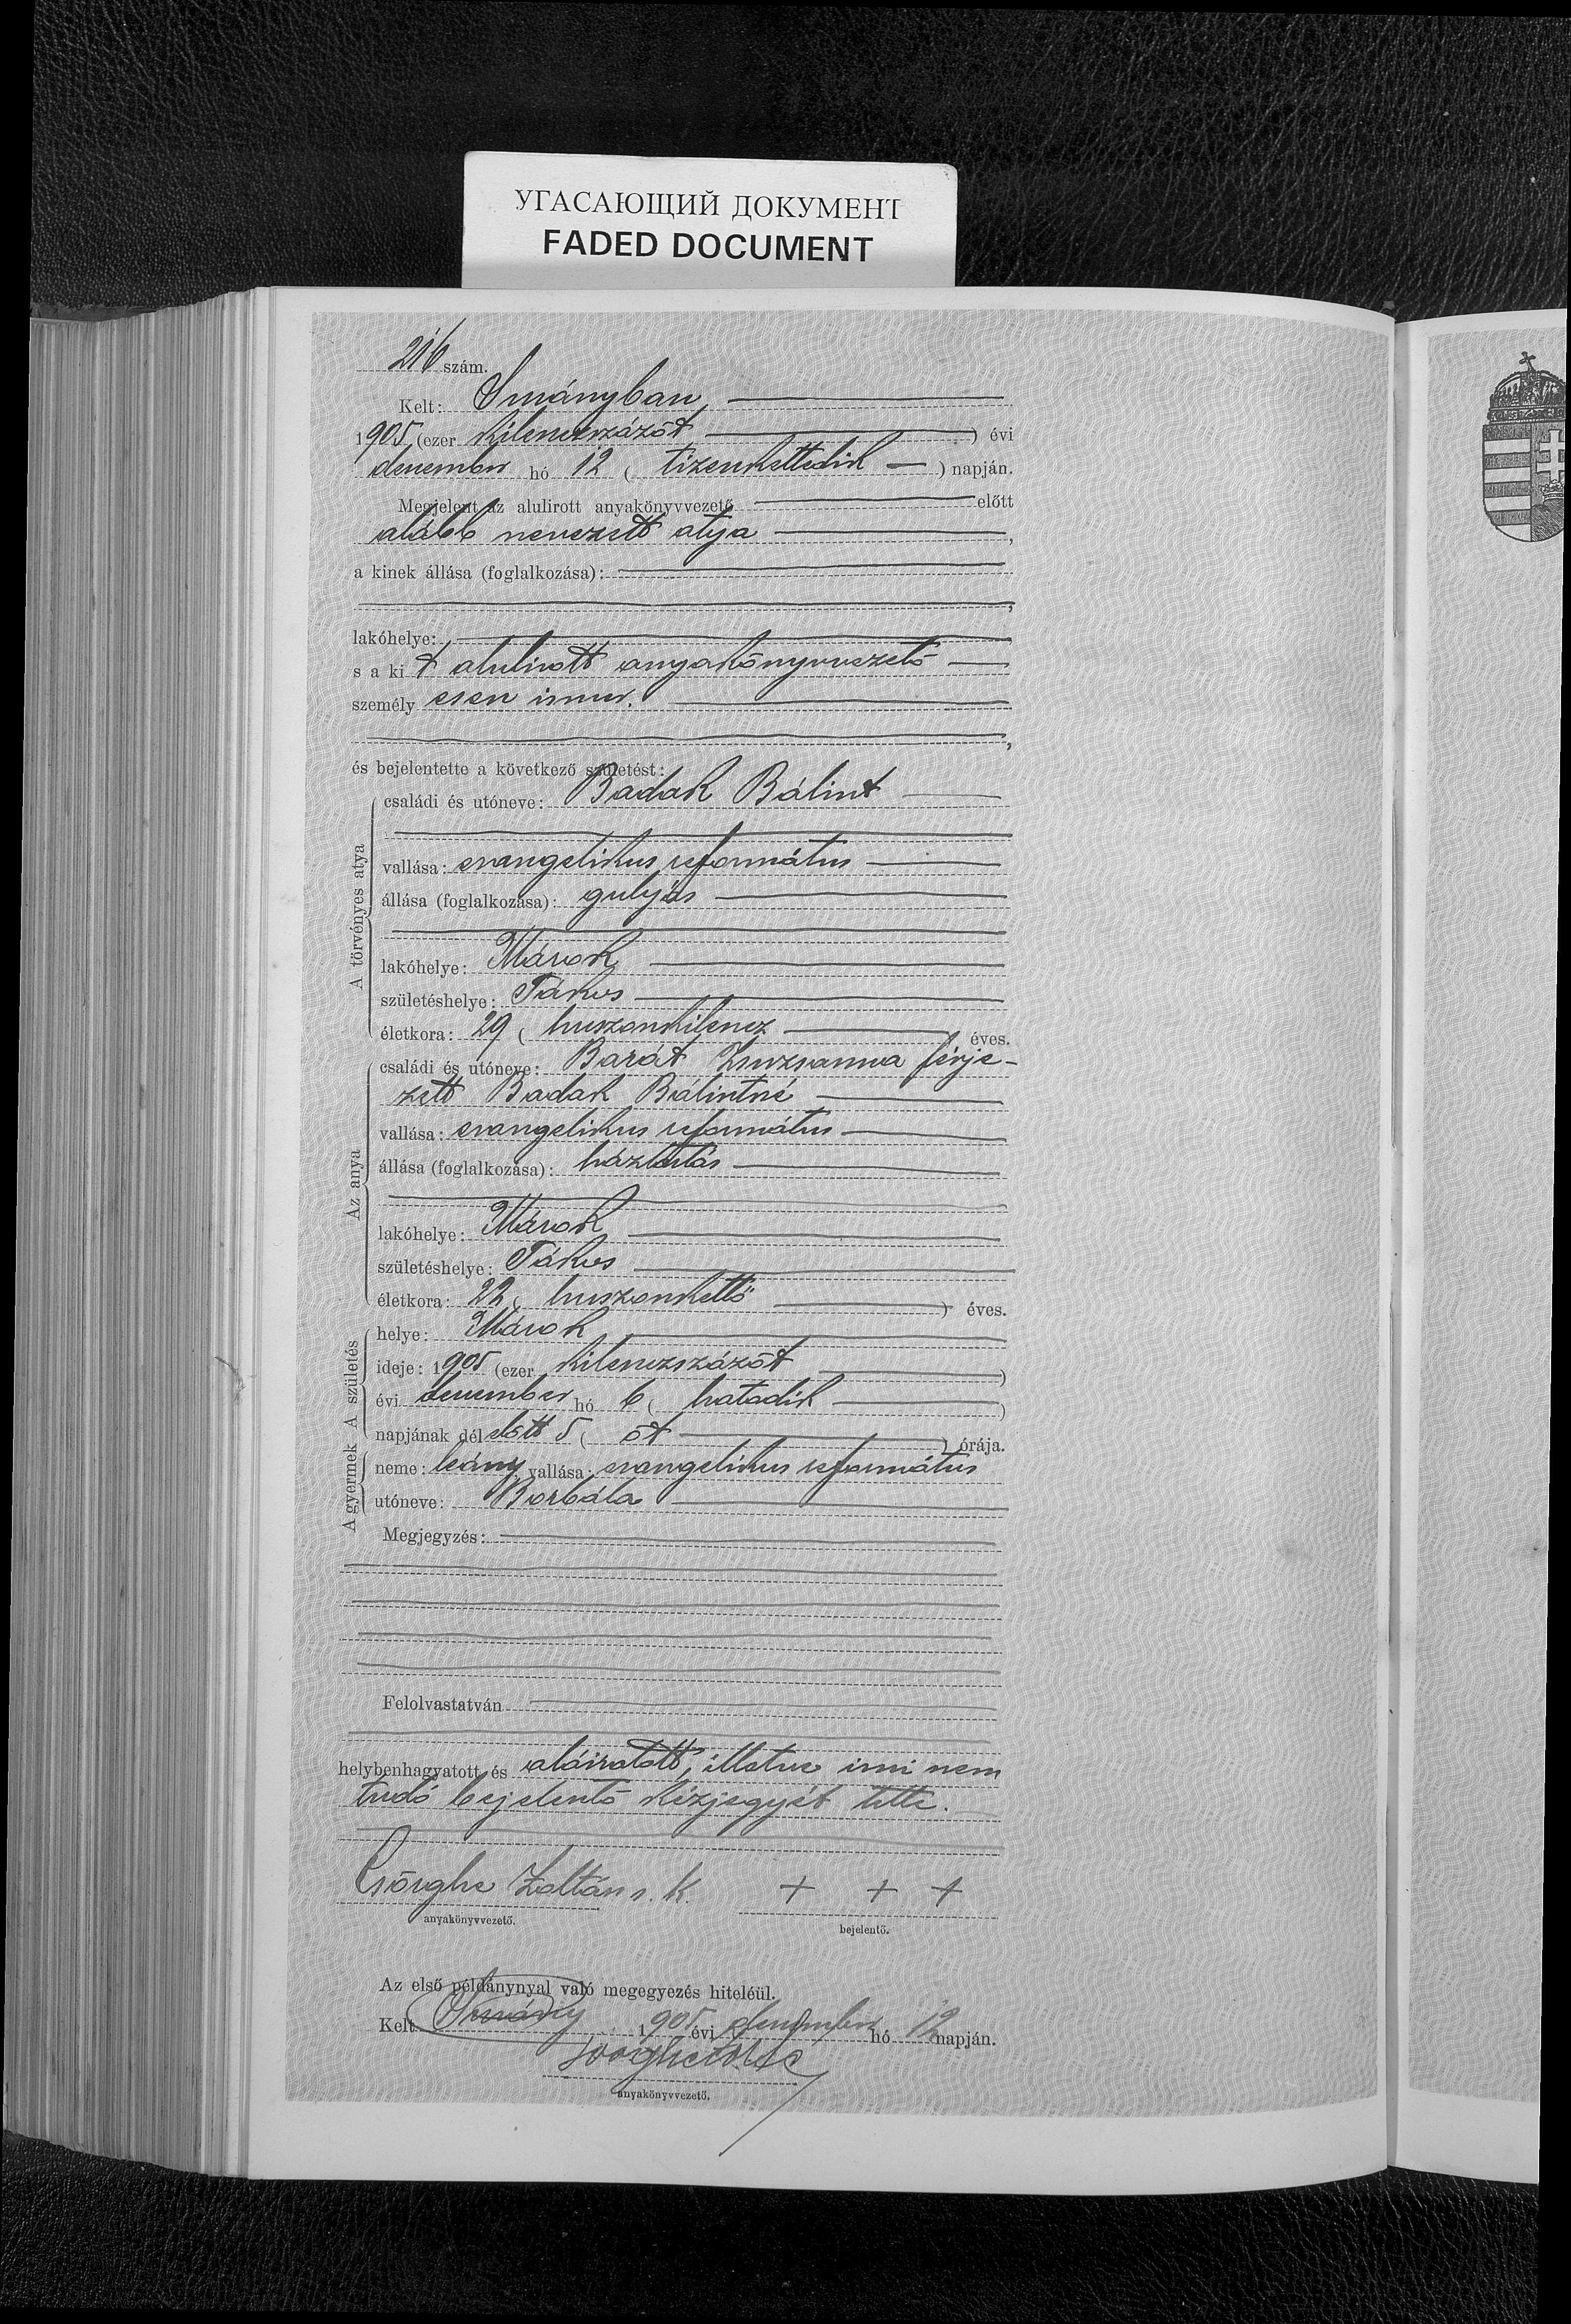 УГАСАЮЩИЙ ДОКУМЕНТ
FADED DOCUMENT
216 szám.
Kelt: Surányban,
1905 (ezer kilenczszázöt) évi
deczember hó 12 ( tizenkettedik ) napján.
Megjelent az alulirott anyakönyvvezető előtt
alább nevezett atya,
a kinek állása (foglalkozása):
lakóhelye:
s a kit alulirott anyakönyvvezető
személyesen ismer.
és bejelentette a következő születést:
A törvényes atya
családi és utóneve: Badak Bálint
vallása: evangelikus református
állása (foglalkozása): gulyás
lakóhelye: Márok
születéshelye: Tákos
életkora: 29 ( huszonkilencz ) éves.
Az anya
családi és utóneve: Barát Zsuzsanna férje-
zett Badak Bálintné
vallása: evangelikus református
állása (foglalkozása): háztartás
lakóhelye: Márok
születéshelye: Tákos
életkora: 22 ( huszonkettő ) éves.
A születés
helye: Márok
ideje: 1905 (ezer kilenczszázöt)
évi deczember hó 6 ( hatodik )
napjának délelőtt 5 ( öt ) órája.
A gyermek
neme: leány, vallása: evangelikus református
utóneve: Borbála
Megjegyzés:
Felolvastatván
helybenhagyatott és aláiratott, illetve irni nem
tudó bejelentő kézjegyét tette.
Csörghe Zoltán s. k. + + +
anyakönyvvezető. bejelentő.
Az első példánynyal való megegyezés hiteléül.
Kelt Surány 1905 évi deczember hó 12 napján.
anyakönyvvezető.